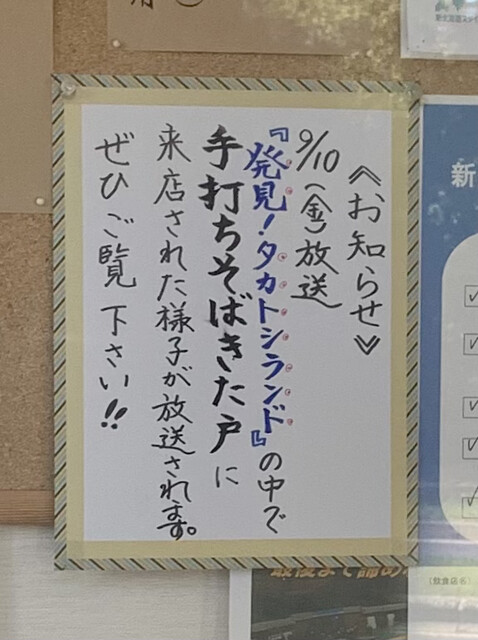 《お知らせ》
9/10(金)放送
『発見!タカトシランド』の中で
手打ちそばきた戸に
来店された様子が放送されます。
ぜひご覧下さい!!
新
(飲食店名)